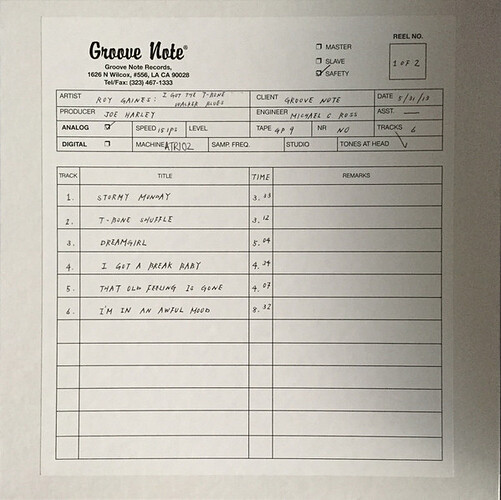 Groove Note®
Groove Note Records,
1626 N Wilcox, #556, LA CA 90028
Tel/Fax: (323) 467-1333
MASTER
SLAVE
SAFETY
REEL NO.
1 OF 2
ARTIST ROY GAINES: I GOT THE T-BONE WALKER BLUES
CLIENT GROOVE NOTE
DATE 5/31/13
PRODUCER JOE HARLEY
ENGINEER MICHAEL C ROSS
ASST. —
ANALOG
SPEED 15 IPS
LEVEL
TAPE GP 9
NR NO
TRACKS 6
DIGITAL
MACHINE ATR102
SAMP. FREQ.
STUDIO
TONES AT HEAD
TRACK TITLE TIME REMARKS
1. STORMY MONDAY 3.03
2. T-BONE SHUFFLE 3.12
3. DREAMGIRL 5.04
4. I GOT A BREAK BABY 4.24
5. THAT OLD FEELING IS GONE 4.07
6. I'M IN AN AWFUL MOOD 8.32